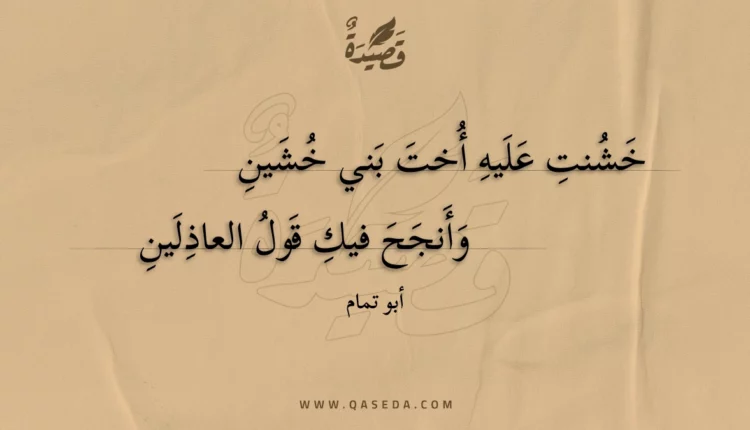 قَصِيدَةٌ
خَشُنتِ عَلَيهِ أُختَ بَني خُشَينِ
وَأَنجَحَ فيكِ قَولُ العاذِلَينِ
أبو تمام
WWW.QASEDA.COM